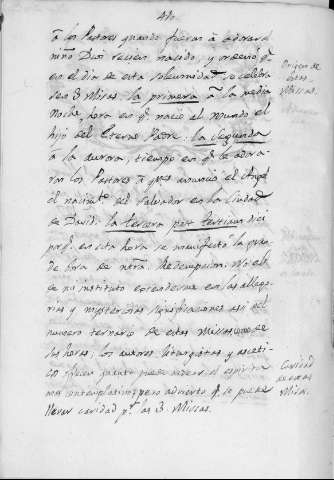 410.
à los Pastores quando fueron à adorar al
niño Dios recien nacido, y ordenó q.e
en el dia de esta solemnidad se celebra
sen 3 Misas. la primera à la media
noche, hora en q.e nació al mundo el
hijo del Eterno Padre: la segunda
à la aurora, tiempo en q.e le adora-
ron los Pastores à q.nes anunció el Angel
el nacim.to del Salvador en la Ciudad
de David: la tercera
porq.e en esta hora se manifestó la gran-
de hora de ntra. Redempcion. No es
de mi instituto estenderme en las allego-
rias y mysteriosas significaciones asi del
numero ternario de estas Missas, como de
las horas; los autores liturgistas y asceti-
cos
mas contemplativo; pero advierto q.e se puede
llevar caridad p.r las 3 Missas.
Origen de
las 3
Missas.
Caridad
de estas
Missas.